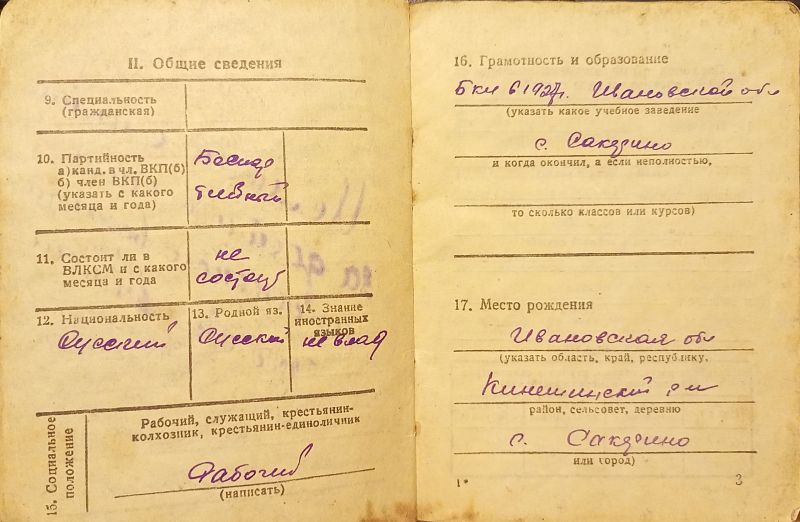 II. Общие сведения
9. Специальность
(гражданская)
10. Партийность
а) канд. в чл. ВКП(б)
б) член ВКП(б)
(указать с какого
месяца и года)
Беспар
тийный
11. Состоит ли в
ВЛКСМ и с какого
месяца и года
не
состоит
12. Национальность
Русский
13. Родной яз.
Русский
14. Знание
иностранных
языков
не влад
15. Социальное
положение
Рабочий, служащий, крестьянин-
колхозник, крестьянин-единоличник
Рабочий
(написать)
16. Грамотность и образование
6 кл в 1927г. Ивановской обл
(указать какое учебное заведение
с.
и когда окончил, а если неполностью,
то сколько классов или курсов)
17. Место рождения
Ивановская обл
(указать область, край, республику,
Кинешминский р-н
район, сельсовет, деревню
с.
или город)
1*
3